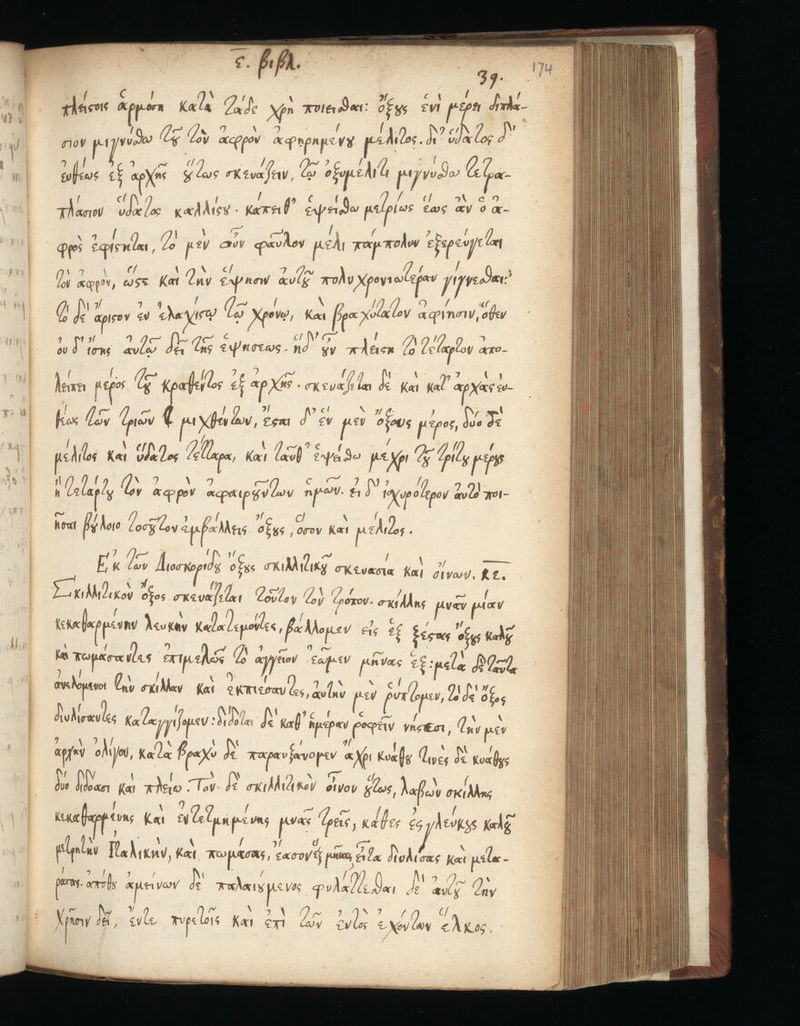 ε. βιβλ.
39. 174
πλείσοις ἁρμόση κατὰ τάδε χρὴ ποιεῖσθαι: ὄξους ἑνὶ μέρει διπλά-
σιον μιγνύσθω τοῦ τὸν ἀφρὸν ἀφῃρημένου μέλιτος. δι' ὕδατος δ'
ἐυθέως ἐξ ἀρχῆς οὕτως σκευάζειν, τῷ ὀξυμέλιτι μιγνύσθω τετρα-
πλάσιον ὕδατος καλλίςου. κἄπειθ' ἑψείσθω μετρίως ἕως ἂν ὁ ἀ-
φρὸς ἐφίςηται, τὸ μὲν οὖν φαῦλον μέλι πάμπολυν ἐξερεύγεται
τὸν ἀφρὸν, ὥςε καὶ τὴν ἕψησιν ἀυτοῦ πολυχρονιωτέραν γίγνεσθαι:
τὸ δὲ ἄριςον ἐν ἐλαχίςῳ τῷ χρόνῳ, καὶ βραχύτατον ἀφίησιν, ὅθεν
οὐ δ' ἴσης ἀυτῷ δεῖ τῆς ἑψήσεως. ἡ δ' οὖν πλείςη τὸ τέταρτον ἀπο-
λείπει μέρος τοῦ κραθέντος ἐξ ἀρχῆς. σκευάζεται δὲ καὶ κατ' ἀρχὰς ἐυ-
θέως τῶν τριῶν μιχθέντων, ἔςαι δ' ἓν μὲν ὄξους μέρος, δύο δὲ
μέλιτος καὶ ὕδατος τέτταρα, καὶ ταῦθ' ἑψείσθω μέχρι τοῦ τρίτου μέρους
ἢ τετάρτου τὸν ἀφρὸν ἀφαιρούντων ἡμῶν. ἐι δ' ἰσχυρότερον ἀυτὸ ποι-
ῆσαι βούλοιο τοσοῦτον ἐμβάλλεις ὄξους, ὅσον καὶ μέλιτος.
Ἐκ τῶν Διοσκορίδου ὄξους σκιλλιτικοῦ σκευασία καὶ οἴνων. κε.
Σκιλλιτικὸν ὄξος σκευάζεται τοῦτον τὸν τρόπον. σκίλλης μνᾶν μίαν
κεκαθαρμένην λευκὴν κατατεμόντες, βάλλομεν εἰς ἓξ ξέςας ὄξους καλοῦ
καὶ πωμάσαντες ἐπιμελῶς τὸ ἀγγεῖον ἐῶμεν μῆνας ἕξ: μετὰ δὲ ταῦτα
ἀνελόμενοι τὴν σκίλλαν καὶ ἐκπιέσαντες, ἀυτὴν μὲν ῥίπτομεν, τὸ δὲ ὄξος
διυλίσαντες καταγγίζομεν: δίδοται δὲ καθ' ἡμέραν ῥοφεῖν νήςεσι, τὴν μὲν
ἀρχὴν ὀλίγον, κατὰ βραχὺ δὲ παραυξάνομεν ἄχρι κυάθου τινὲς δὲ κυάθους
δύο διδόασι καὶ πλείω. Τὸν δὲ σκιλλιτικὸν οἶνον οὕτως, λαβὼν σκίλλης
κεκαθαρμένης καὶ ἐντετμημένης μνᾶς τρεῖς, κάθες ἐς γλεύκους καλοῦ
μετρητὴν Ἰταλικὴν, καὶ πωμάσας, ἔασον ἓξ μῆνας, εἶτα διυλίσας καὶ μετα-
ράσας. ἀπόθου ἀμείνων δὲ παλαιούμενος φυλάττεσθαι δὲ ἀυτοῦ τὴν
χρῆσιν δεῖ, ἔντε πυρετοῖς καὶ ἐπὶ τῶν ἐντὸς ἐχόντων ἕλκος.